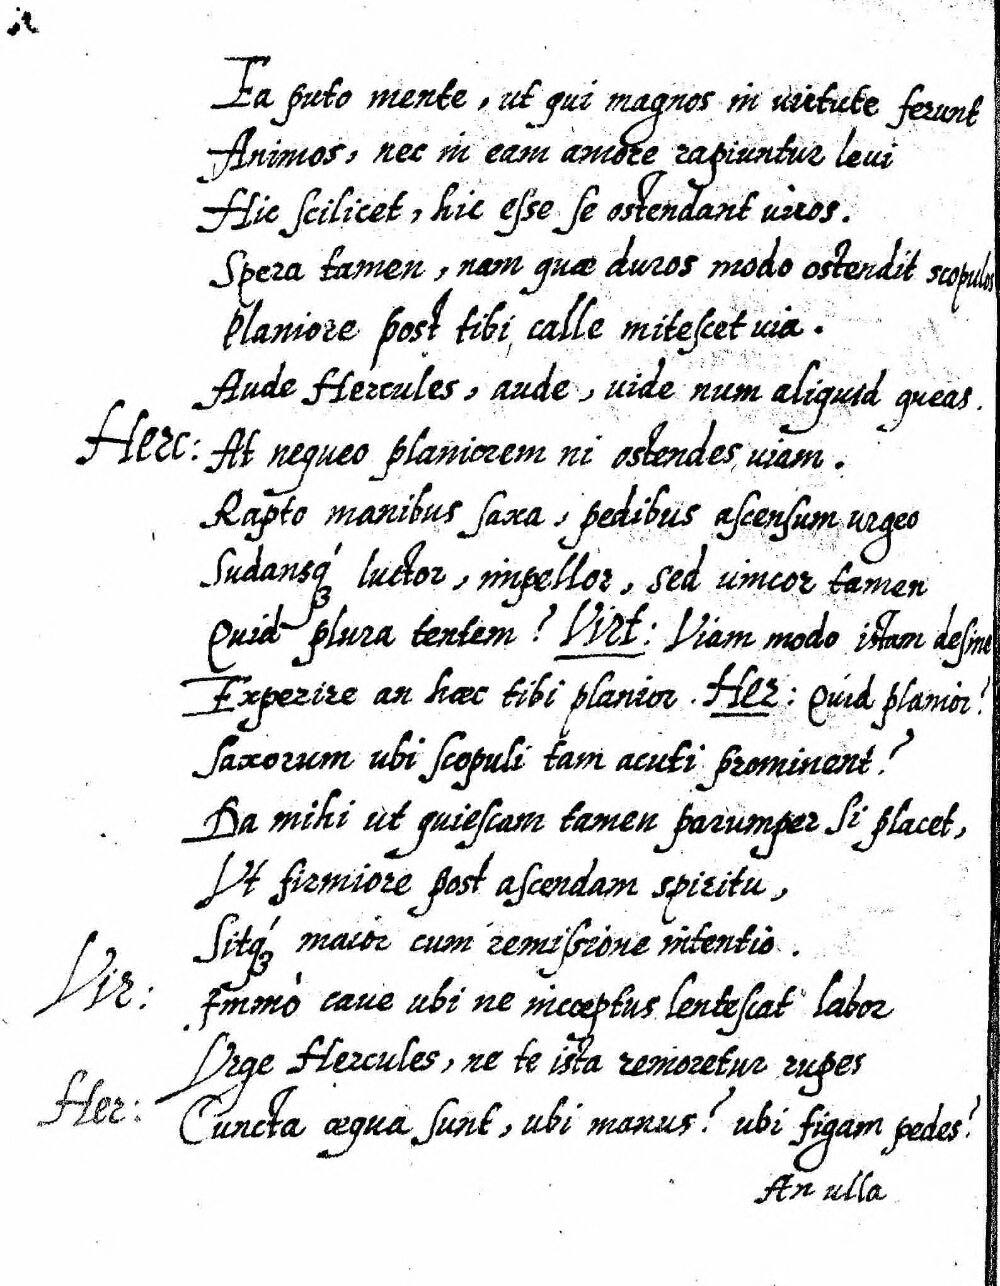 Ea puto mente, ut qui magnos in virtute ferunt
Animos, nec in eam amore rapiuntur leui
Hic scilicet, hic esse se ostendant uiros.
Spera tamen, nam quæ duros modo ostendit scopulos
Planiore post tibi calle mitescet uia.
Aude Hercules, aude, uide num aliquid queas.
Herc: At nequeo planiorem ni ostendes uiam.
Rapto manibus saxa, pedibus ascensum urgeo
Sudansq́ꝫ luctor, impellor, sed uincor tamen
Quid plura tentem? Virt: Viam modo istam desine
Experire an hæc tibi planior. Her: Quid planior?
Saxorum ubi scopuli tam acuti prominent?
Da mihi ut quiescam tamen parumper si placet,
Vt firmiore post ascendam spiritu,
Sitq́ꝫ maior cum remissione intentio.
Vir: Immò caue ubi ne incœptus lentescat labor
Vrge Hercules, ne te ista remoretur rupes
Her: Cuncta æqua sunt, ubi manus? ubi figam pedes?
An ulla